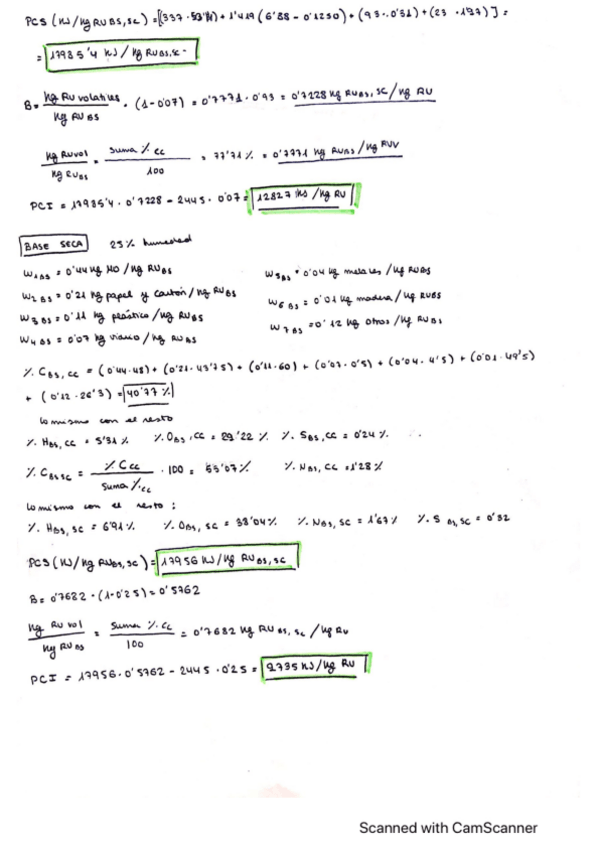 PCS (KJ/Kg RUBS,SC) = [(337 · 53'91) + 1'419 (6'88 - 0'1250) + (93 · 0'31) + (23 · 1'97)] =
= 17935'4 KJ/Kg RUBS,SC
B = Kg RU volatiles / Kg RU BS · (1-0'07) = 0'7771 · 0'93 = 0'7228 Kg RUBS, SC/Kg RU
Kg RUvol / Kg RUBS = Suma % CC / 100 = 77'71 % = 0'7771 Kg RUBS/Kg RUV
PCI = 17935'4 · 0'7228 - 2445 · 0'07 = 12827 KJ/Kg RU
BASE SECA 25% humedad
W1BS = 0'44 Kg MO/Kg RUBS W5BS = 0'04 Kg metales/Kg RUBS
W2 BS = 0'21 Kg papel y cartón/Kg RUBS W6 BS = 0'01 Kg madera/Kg RUBS
W3 BS = 0'11 Kg plástico/Kg RUBS W7 BS = 0'12 Kg otros/Kg RUBS
W4 BS = 0'07 Kg vidrio/Kg RUBS
% CBS, CC = (0'44·48) + (0'21·43'75) + (0'11·60) + (0'07·0'5) + (0'04·4'5) + (0'01·49'5)
+ (0'12·26'3) = 40'77 %
Lo mismo con el resto
% HBS, CC = 5'31 % % OBS, CC = 29'22 % % SBS, CC = 0'24 %
% CBS SC = % CCC / Suma % CC · 100 = 53'07 % % NBS, CC = 1'28 %
Lo mismo con el resto :
% HBS, SC = 6'91 % % OBS, SC = 38'04 % % NBS, SC = 1'67 % % S BS, SC = 0'32
PCS (KJ/Kg RUBS, SC) = 17956 KJ/Kg RUBS, SC
B = 0'7682 · (1-0'25) = 0'5762
Kg RU vol / Kg RU BS = Suma % CC / 100 = 0'7682 Kg RU BS, SC/Kg RU
PCI = 17956 · 0'5762 - 2445 · 0'25 = 9735 KJ/Kg RU
Scanned with CamScanner